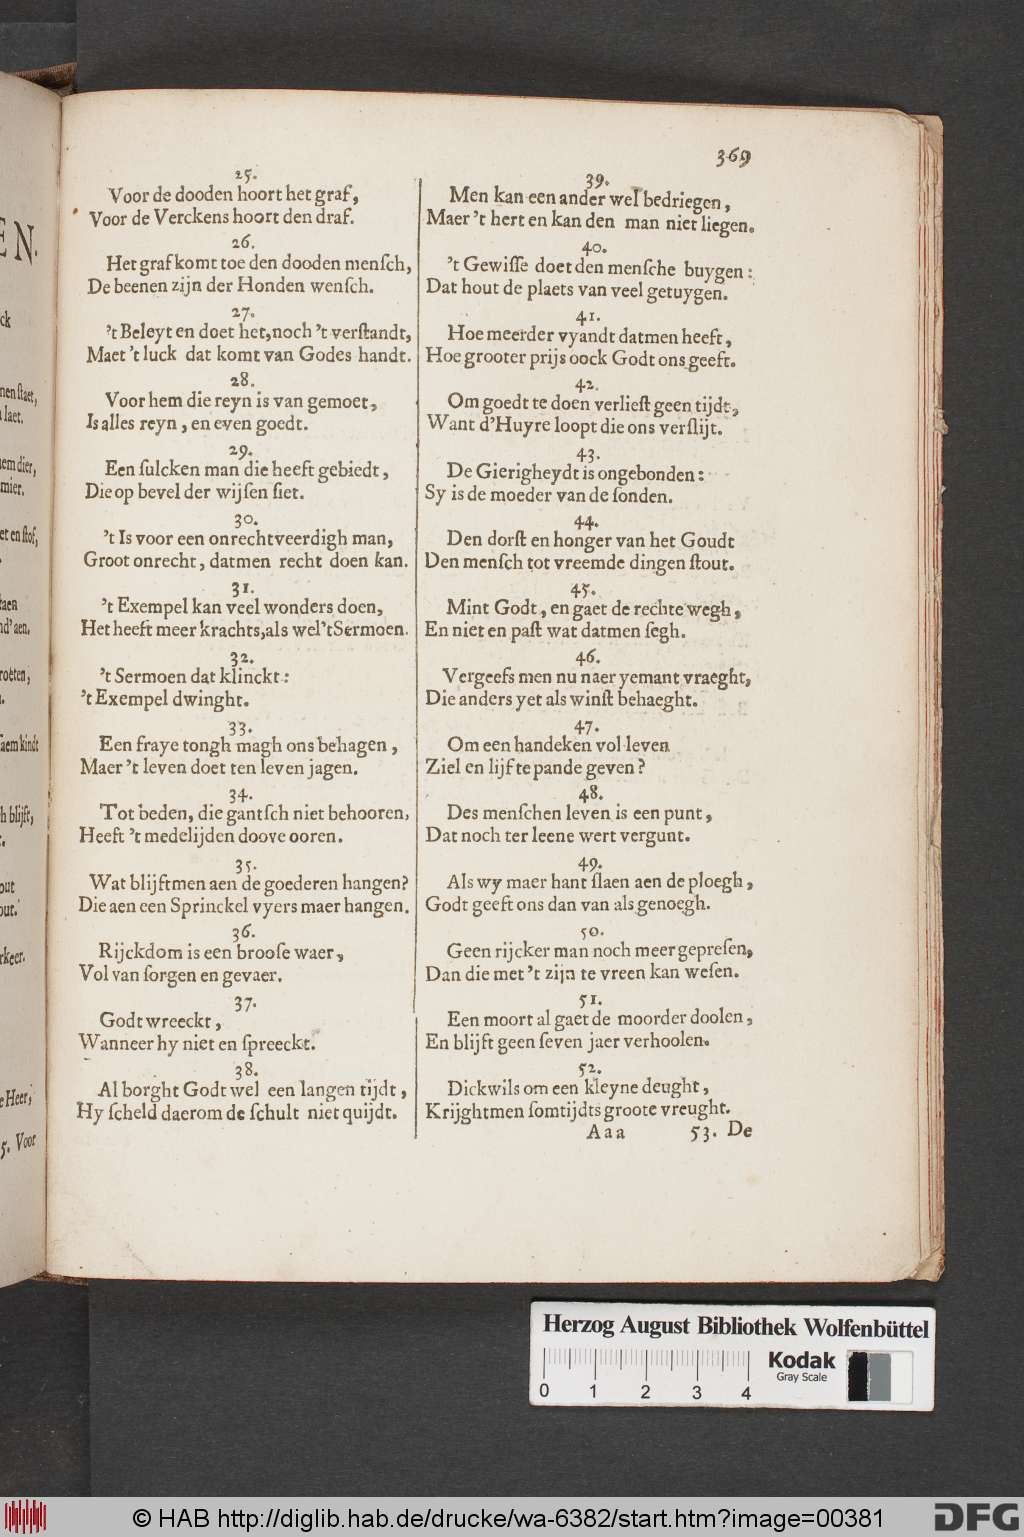 369
25.
Voor de dooden hoort het graf,
Voor de Verckens hoort den draf.
26.
Het graf komt toe den dooden menſch,
De beenen zijn der Honden wenſch.
27.
't Beleyt en doet het, noch 't verſtandt,
Maet 't luck dat komt van Godes handt.
28.
Voor hem die reyn is van gemoet,
Is alles reyn, en even goedt.
29.
Een ſulcken man die heeft gebiedt,
Die op bevel der wijſen ſiet.
30.
't Is voor een onrechtveerdigh man,
Groot onrecht, datmen recht doen kan.
31.
't Exempel kan veel wonders doen,
Het heeft meer krachts, als wel 't Sermoen.
32.
't Sermoen dat klinckt:
't Exempel dwinght.
33.
Een fraye tongh magh ons behagen,
Maer 't leven doet ten leven jagen.
34.
Tot beden, die gantſch niet behooren,
Heeft 't medelijden doove ooren.
35.
Wat blijftmen aen de goederen hangen?
Die aen een Sprinckel vyers maer hangen.
36.
Rijckdom is een brooſe waer,
Vol van ſorgen en gevaer.
37.
Godt wreeckt,
Wanneer hy niet en ſpreeckt.
38.
Al borght Godt wel een langen tijdt,
Hy ſcheld daerom de ſchult niet quijdt.
39.
Men kan een ander wel bedriegen,
Maer 't hert en kan den man niet liegen.
40.
't Gewiſſe doet den menſche buygen:
Dat hout de plaets van veel getuygen.
41.
Hoe meerder vyandt datmen heeft,
Hoe grooter prijs oock Godt ons geeft.
42.
Om goedt te doen verlieſt geen tijdt,
Want d'Huyre loopt die ons verſlijt.
43.
De Gierigheydt is ongebonden:
Sy is de moeder van de ſonden.
44.
Den dorſt en honger van het Goudt
Den menſch tot vreemde dingen ſtout.
45.
Mint Godt, en gaet de rechte wegh,
En niet en paſt wat datmen ſegh.
46.
Vergeefs men nu naer yemant vraeght,
Die anders yet als winſt behaeght.
47.
Om een handeken vol leven
Ziel en lijf te pande geven?
48.
Des menſchen leven is een punt,
Dat noch ter leene wert vergunt.
49.
Als wy maer hant ſlaen aen de ploegh,
Godt geeft ons dan van als genoegh.
50.
Geen rijcker man noch meer gepreſen,
Dan die met 't zijn te vreen kan weſen.
51.
Een moort al gaet de moorder doolen,
En blijft geen ſeven jaer verhoolen.
52.
Dickwils om een kleyne deught,
Krijghtmen ſomtijdts groote vreught.
Aaa 53. De
EN.
ck
nen ſtaet,
laet.
em dier,
mier.
et en ſtof,
aen
nd' aen.
roeten,
aem kindt
h blijft,
out
out.
rkeer.
e Heer,
5. Voor
Herzog August Bibliothek Wolfenbüttel
Kodak
Gray Scale
0 1 2 3 4
© HAB http://diglib.hab.de/drucke/wa-6382/start.htm?image=00381
DFG